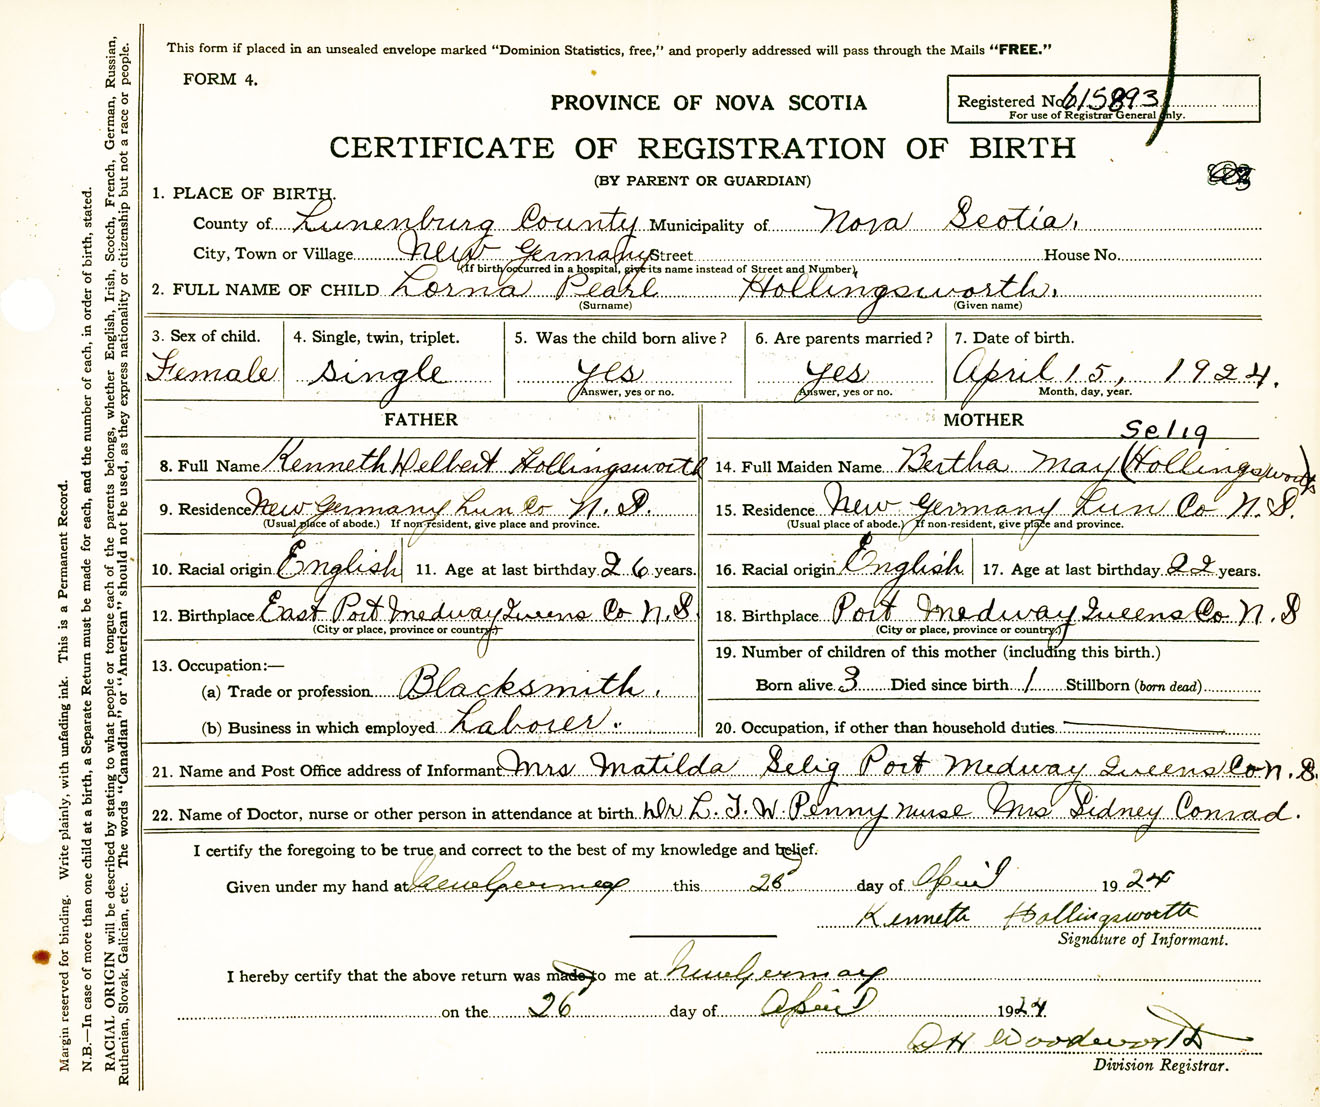 This form if placed in an unsealed envelope marked “Dominion Statistics, free,” and properly addressed will pass through the Mails “FREE.”
FORM 4.
PROVINCE OF NOVA SCOTIA
Registered No. 615893
For use of Registrar General only.
CERTIFICATE OF REGISTRATION OF BIRTH
(BY PARENT OR GUARDIAN)
1. PLACE OF BIRTH.
County of Lunenburg County Municipality of Nova Scotia.
City, Town or Village New Germany Street House No.
(If birth occurred in a hospital, give its name instead of Street and Number)
2. FULL NAME OF CHILD Lorna Pearl Hollingsworth.
(Surname) (Given name)
3. Sex of child. 4. Single, twin, triplet. 5. Was the child born alive? 6. Are parents married? 7. Date of birth.
Female single yes yes April 15, 1924.
Answer, yes or no. Answer, yes or no. Month, day, year.
FATHER MOTHER
Selig
8. Full Name Kenneth Delbert Hollingsworth 14. Full Maiden Name Bertha May (Hollingsworth)
9. Residence New Germany Lun Co N.S. 15. Residence New Germany Lun Co N.S.
(Usual place of abode.) If non resident, give place and province. (Usual place of abode.) If non-resident, give place and province.
10. Racial origin English 11. Age at last birthday 26 years. 16. Racial origin English 17. Age at last birthday 22 years.
12. Birthplace East Port Medway Queens Co N.S. 18. Birthplace Port Medway Queens Co N.S
(City or place, province or country.) (City or place, province or country.)
13. Occupation:— 19. Number of children of this mother (including this birth.)
(a) Trade or profession Blacksmith. Born alive 3 Died since birth 1 Stillborn (born dead)
(b) Business in which employed Laborer. 20. Occupation, if other than household duties
21. Name and Post Office address of Informant Mrs Matilda Selig Port Medway Queens Co N.S.
22. Name of Doctor, nurse or other person in attendance at birth Dr L. T. W. Penny nurse Mrs Sidney Conrad.
I certify the foregoing to be true and correct to the best of my knowledge and belief.
Given under my hand at New Germany this 26 day of April 1924
Kenneth Hollingsworth
Signature of Informant.
I hereby certify that the above return was made to me at New Germany
on the 26 day of April 1924
Woodworth
Division Registrar.
Margin reserved for binding. Write plainly, with unfading ink. This is a Permanent Record.
N.B.—In case of more than one child at a birth, a Separate Return must be made for each, and the number of each, in order of birth, stated.
RACIAL ORIGIN will be described by stating to what people or tongue each of the parents belongs, whether English, Irish, Scotch, French, German, Russian,
Ruthenian, Slovak, Galician, etc. The words “Canadian” or “American” should not be used, as they express nationality or citizenship but not a race or people.